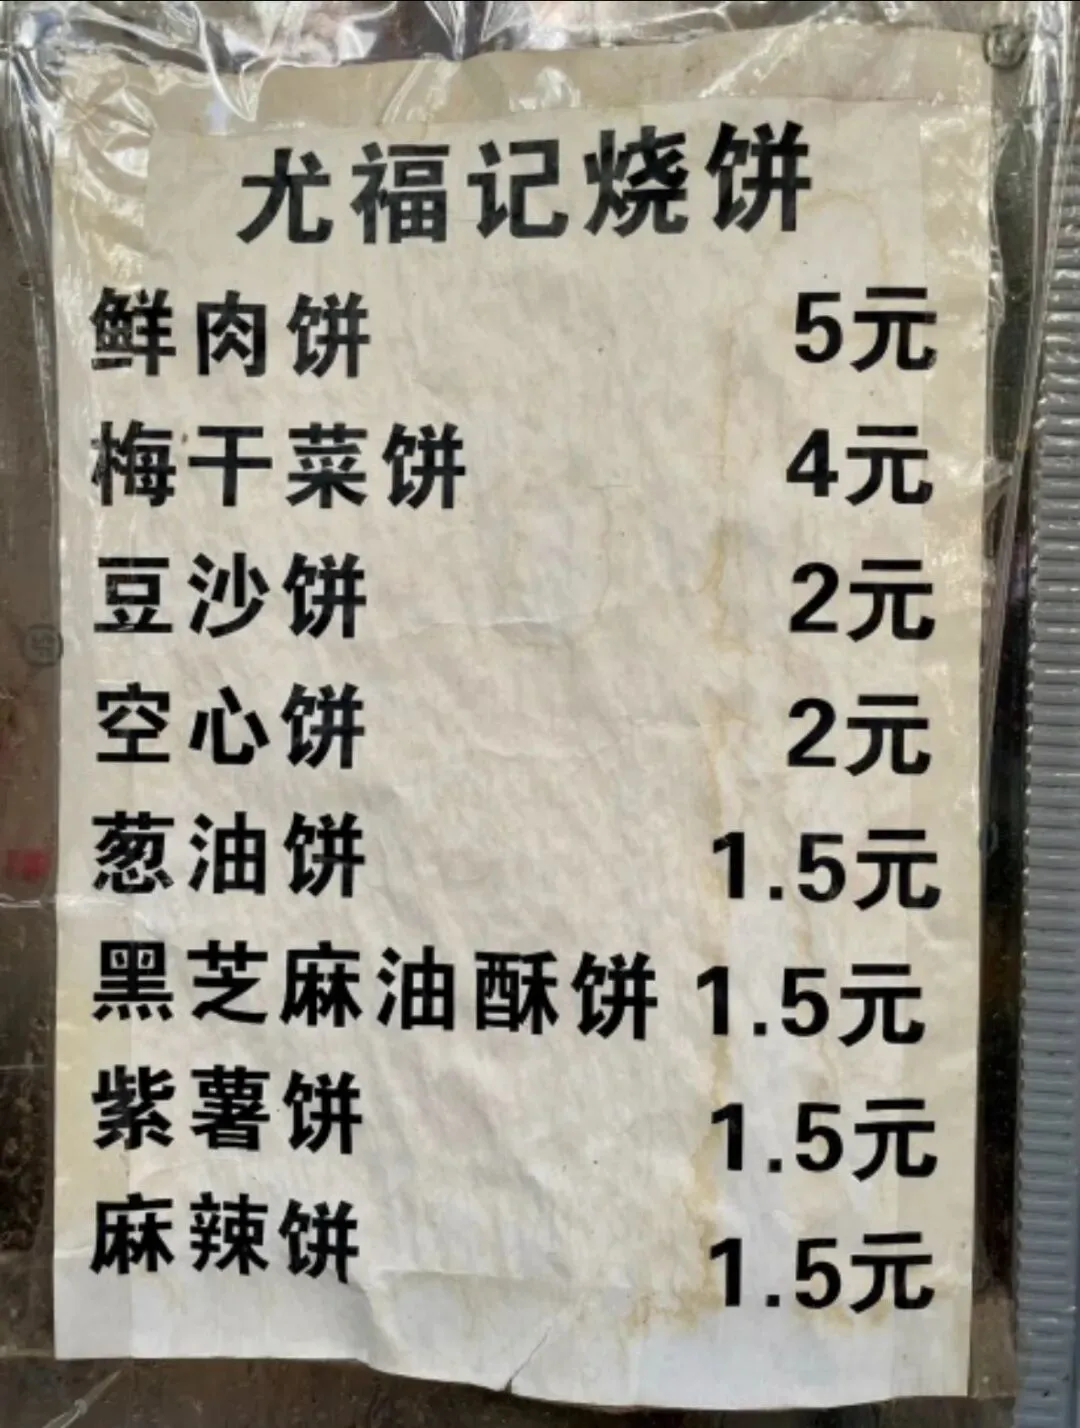 尤福记烧饼
鲜肉饼 5元
梅干菜饼 4元
豆沙饼 2元
空心饼 2元
葱油饼 1.5元
黑芝麻油酥饼 1.5元
紫薯饼 1.5元
麻辣饼 1.5元